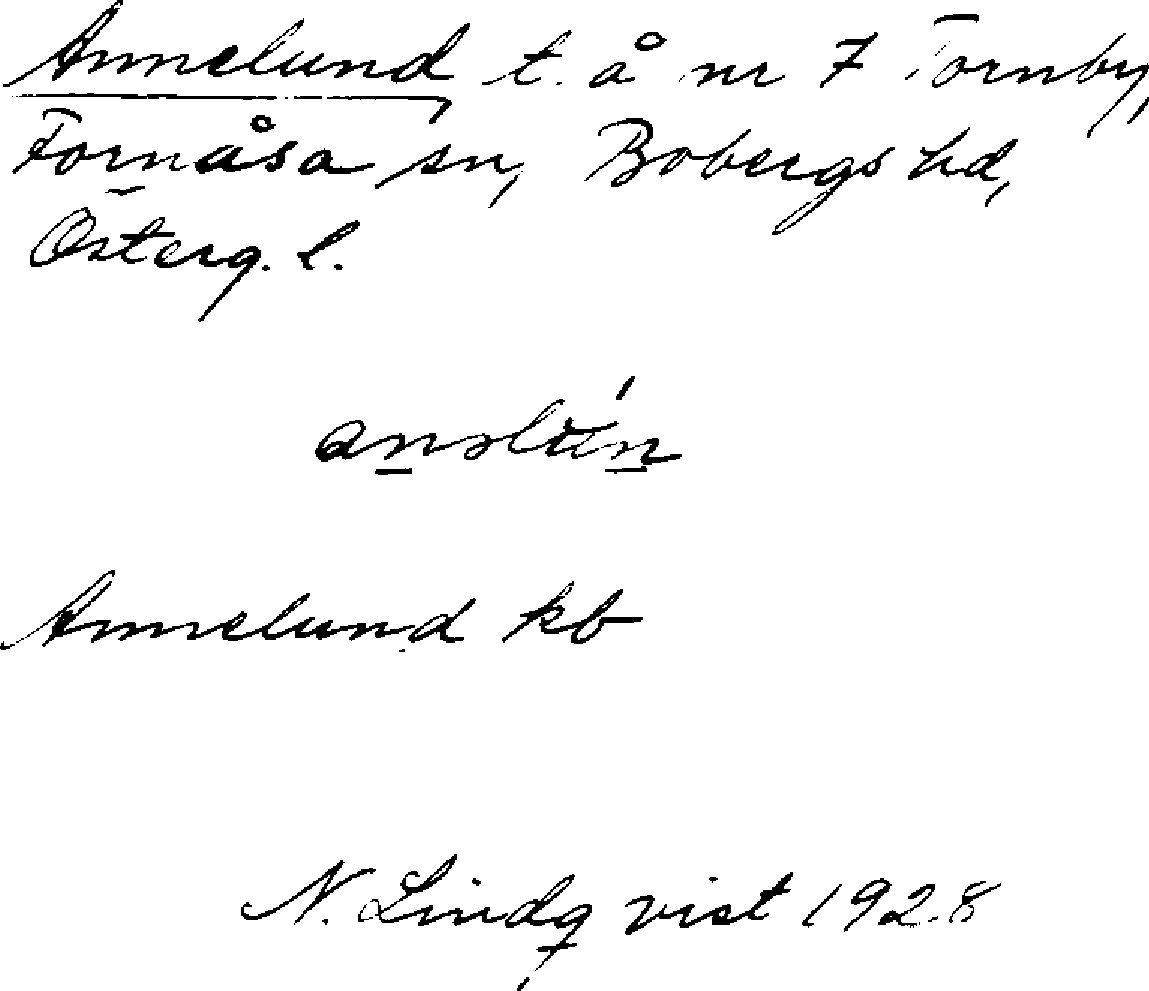 Annelund, t. å nr 7 Tornby,
Fornåsa sn, Bobergs hd,
Österg. l.
Annelund kb
N. Lindqvist 1928